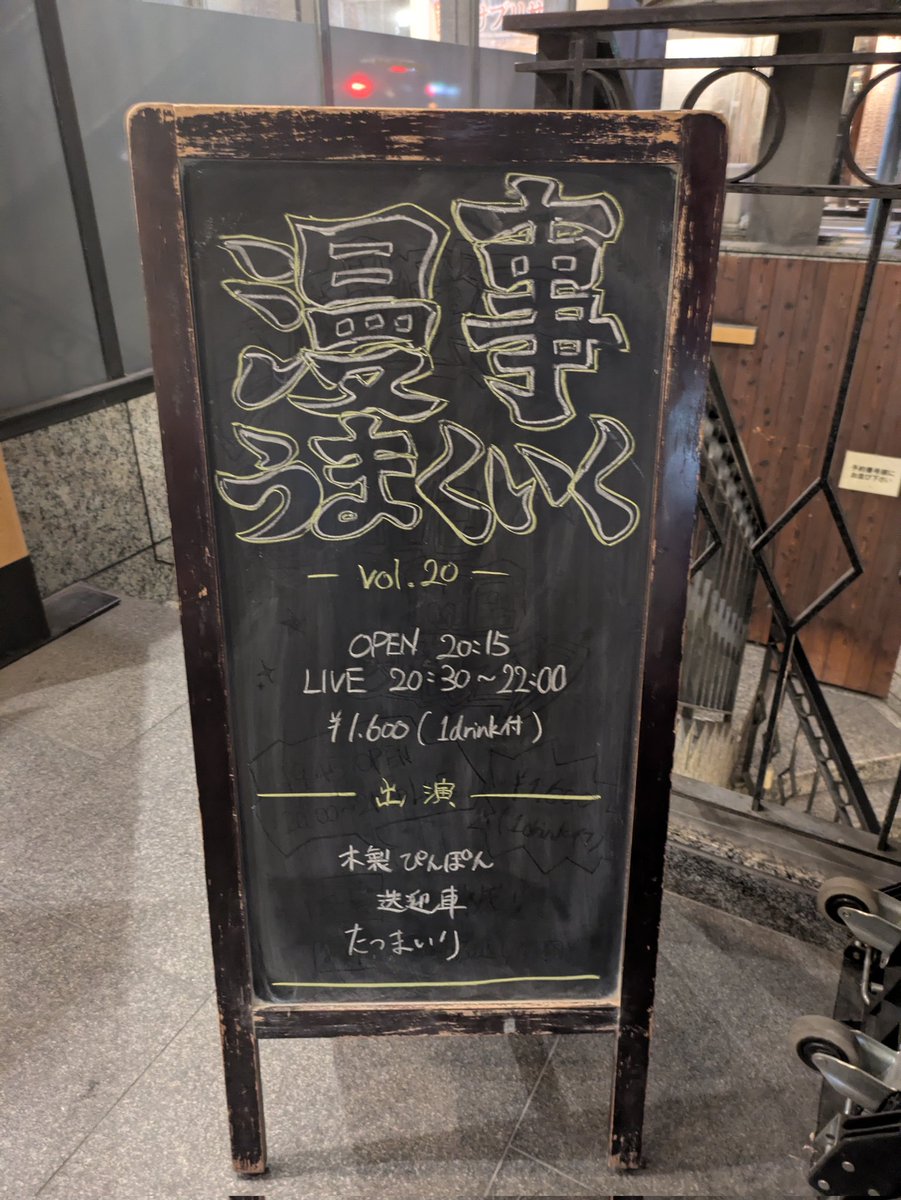 漫事
うまくいく
- vol.20 -
OPEN 20:15
LIVE 20:30~22:00
¥1.600 (1drink付)
出演
木製ぴんぽん
送迎車
たつまいり
予約番号順に
お並び下さい